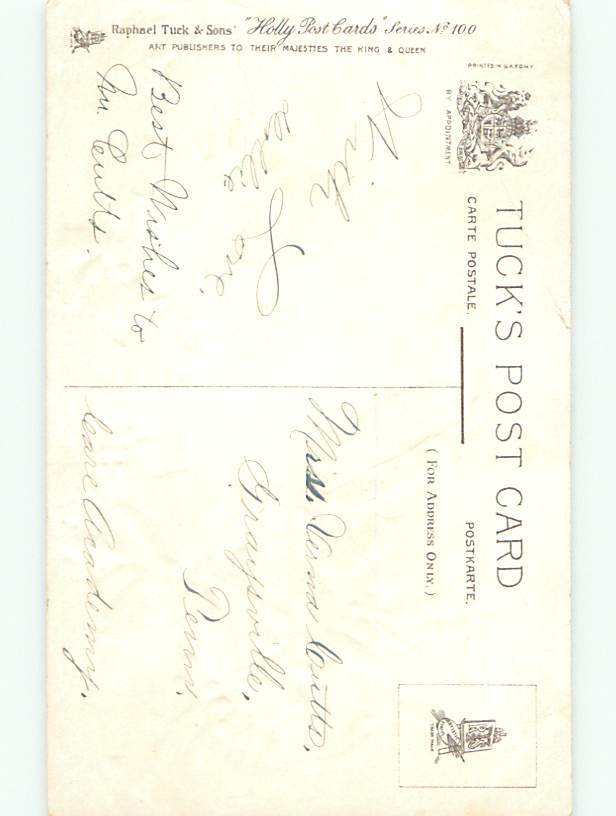 Raphael Tuck & Sons' "Holly Post Cards" Series Nº 100
ART PUBLISHERS TO THEIR MAJESTIES THE KING & QUEEN
PRINTED IN SAXONY
BY APPOINTMENT
TUCK'S POST CARD
CARTE POSTALE.
POSTKARTE.
(FOR ADDRESS ONLY.)
With
Best Wishes to
Mr. Cutts.
Miss. Verna Coutts,
Graysville,
Penn.
Care Academy.